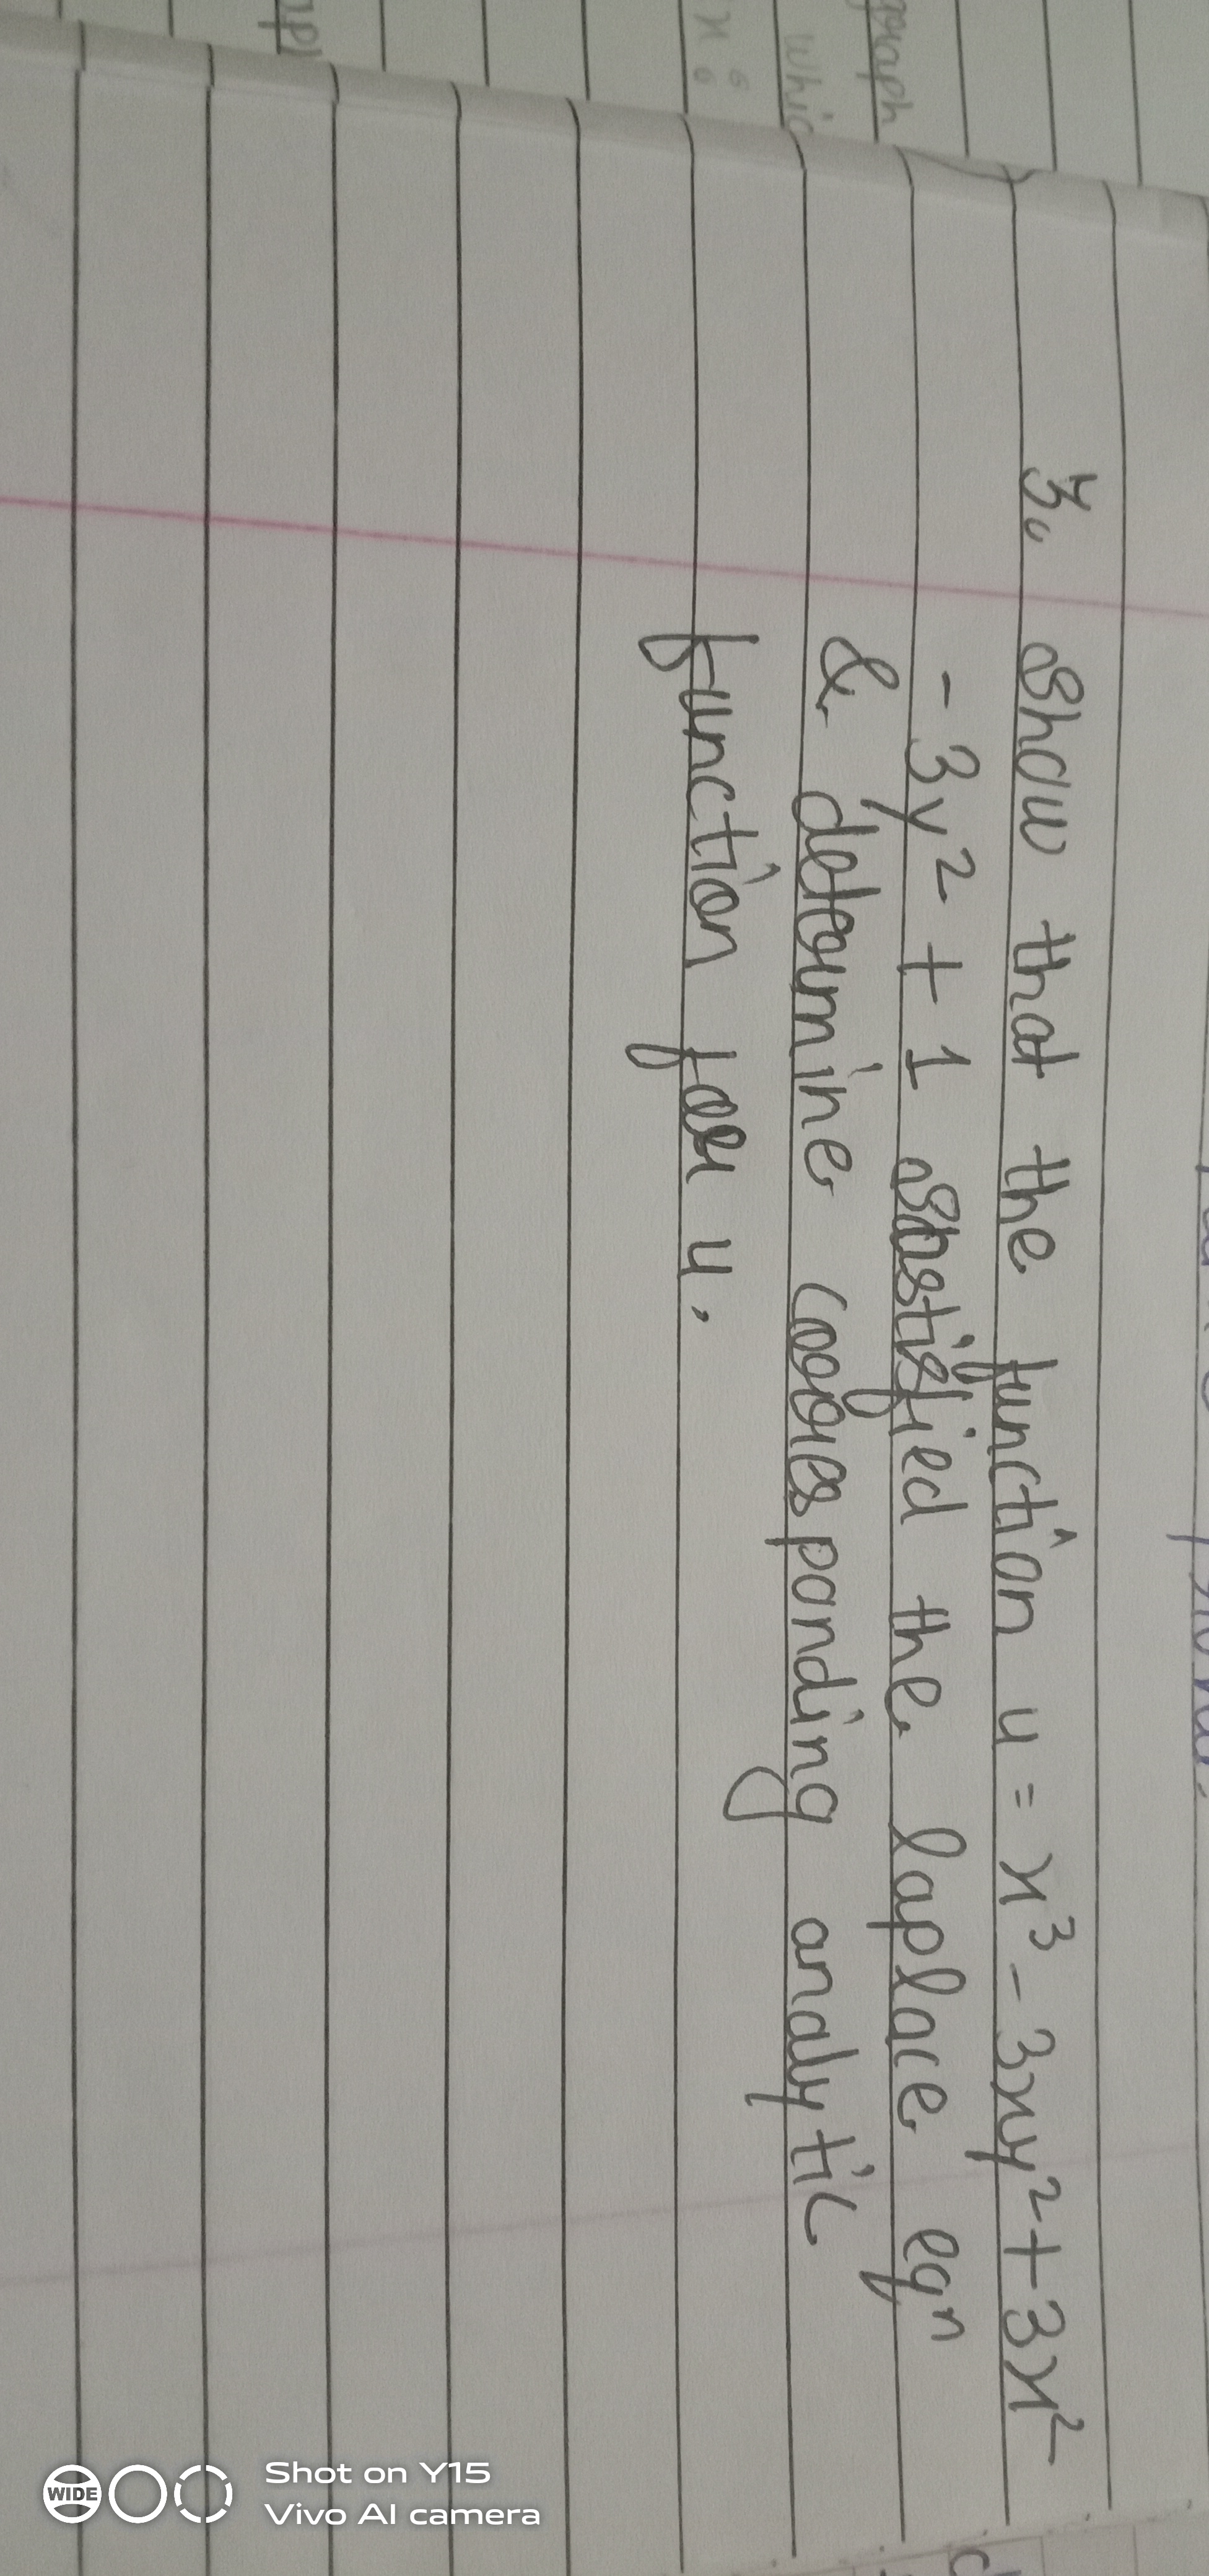 3. Show that the function u = x³ - 3xy² + 3x²
- 3y² + 1 sastisfied the laplace eqⁿ
& determine corresponding analytic
function for u.
graph
whic
WIDE
Shot on Y15
Vivo AI camera